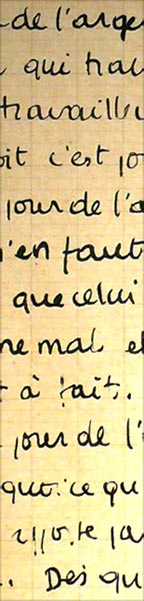 de l'arge
qui trav
travaille
oit c'est jo
jour de l'a
j'en faut
que celui
me mal et
t à fait.
jour de l'
quoi ce qu
te ja
. Dès qu